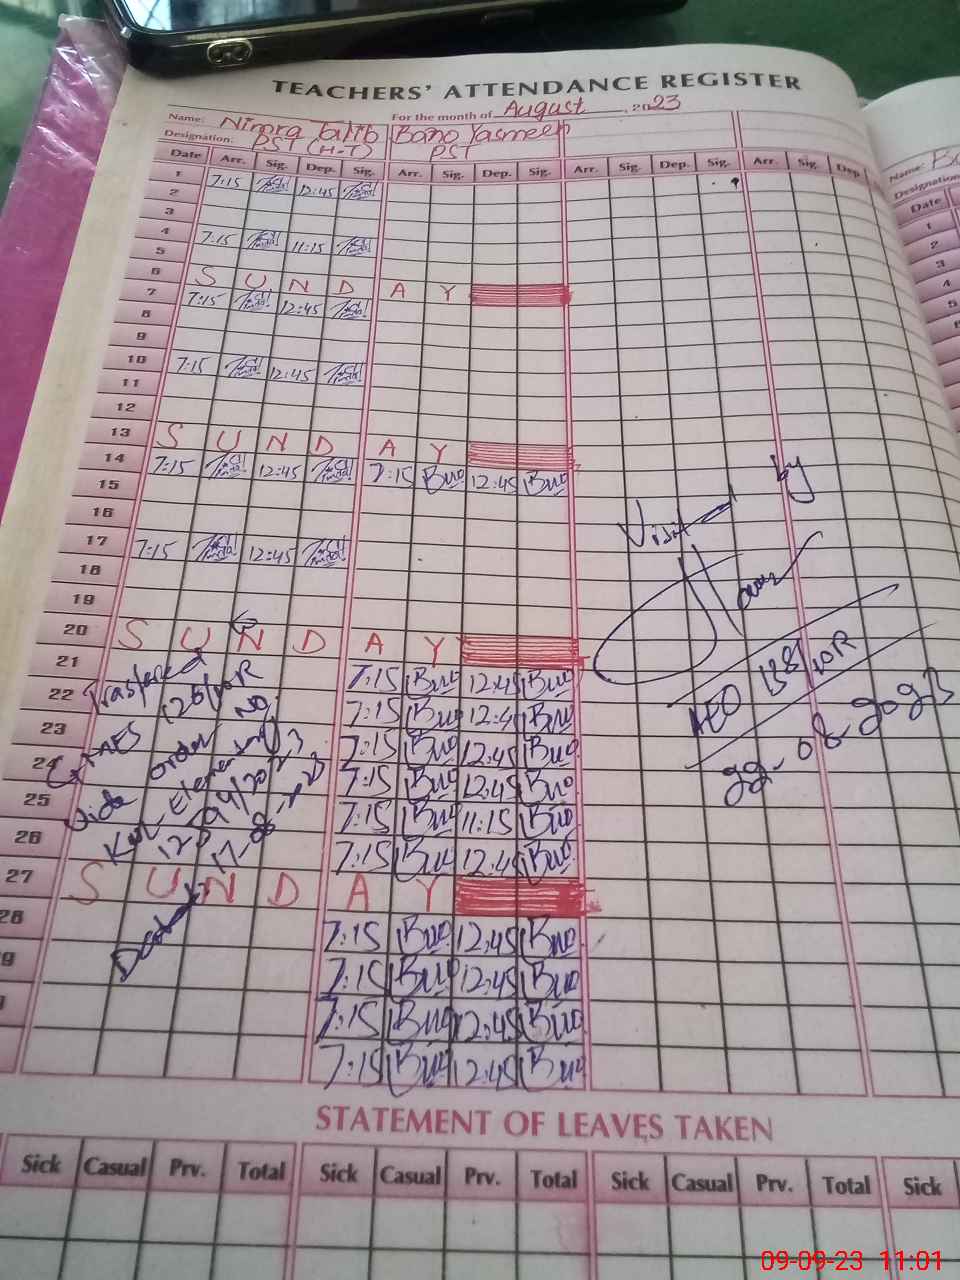 TEACHERS' ATTENDANCE REGISTER
For the month of August 2023
Name: Talib Bano Yasmeen
Designation: PST (H-T) PST
Date Arr. Sig. Dep. Sig. Arr. Sig. Dep. Sig. Arr. Sig. Dep. Sig. Arr. Sig. Dep.
1 7:15 12:45
2
3
4 7:15 11:15
5
6 SUNDAY
7 7:15 12:45
8
9
10 7:15 12:45
11
12
13 SUNDAY
14 7:15 12:45 7:15 Bno 12:45 Bno
15
16
17 7:15 12:45
18
19
20 SUNDAY
21 7:15 Bno 12:45 Bno
22 7:15 Bno 12:4 Bno
23 7:15 Bno 12:45 Bno
24 7:15 Bno 12:45 Bno
25 7:15 Bno 11:15 Bno
26 7:15 Bno 12:45 Bno
27 SUNDAY
28 7:15 Bno 12:45 Bno
9 7:15 Bno 12:45 Bno
7:15 Bno 12:45 Bno
7:15 Bno 12:45 Bno
Trasfered
126/10R
Vide order NO
17-08-2023
Visit by
AEO 138/10R
29-08-2023
STATEMENT OF LEAVES TAKEN
Sick Casual Prv. Total Sick Casual Prv. Total Sick Casual Prv. Total Sick
Name:
Designation
Date
1
2
3
4
5
09-09-23 11:01